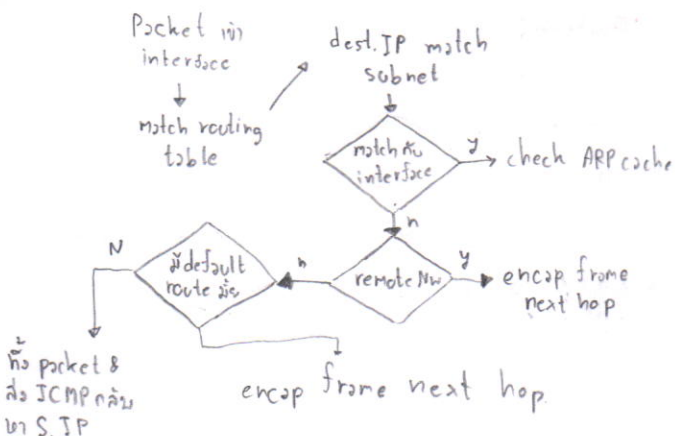 Packet เข้า
interface
match routing
table
dest. IP match
subnet
match กับ
interface
y
check ARP cache
n
remote NW
y
encap frame
next hop
n
มี default
route มั้ย
N
ทิ้ง packet &
ส่ง ICMP กลับ
หา S. IP
encap frame next hop